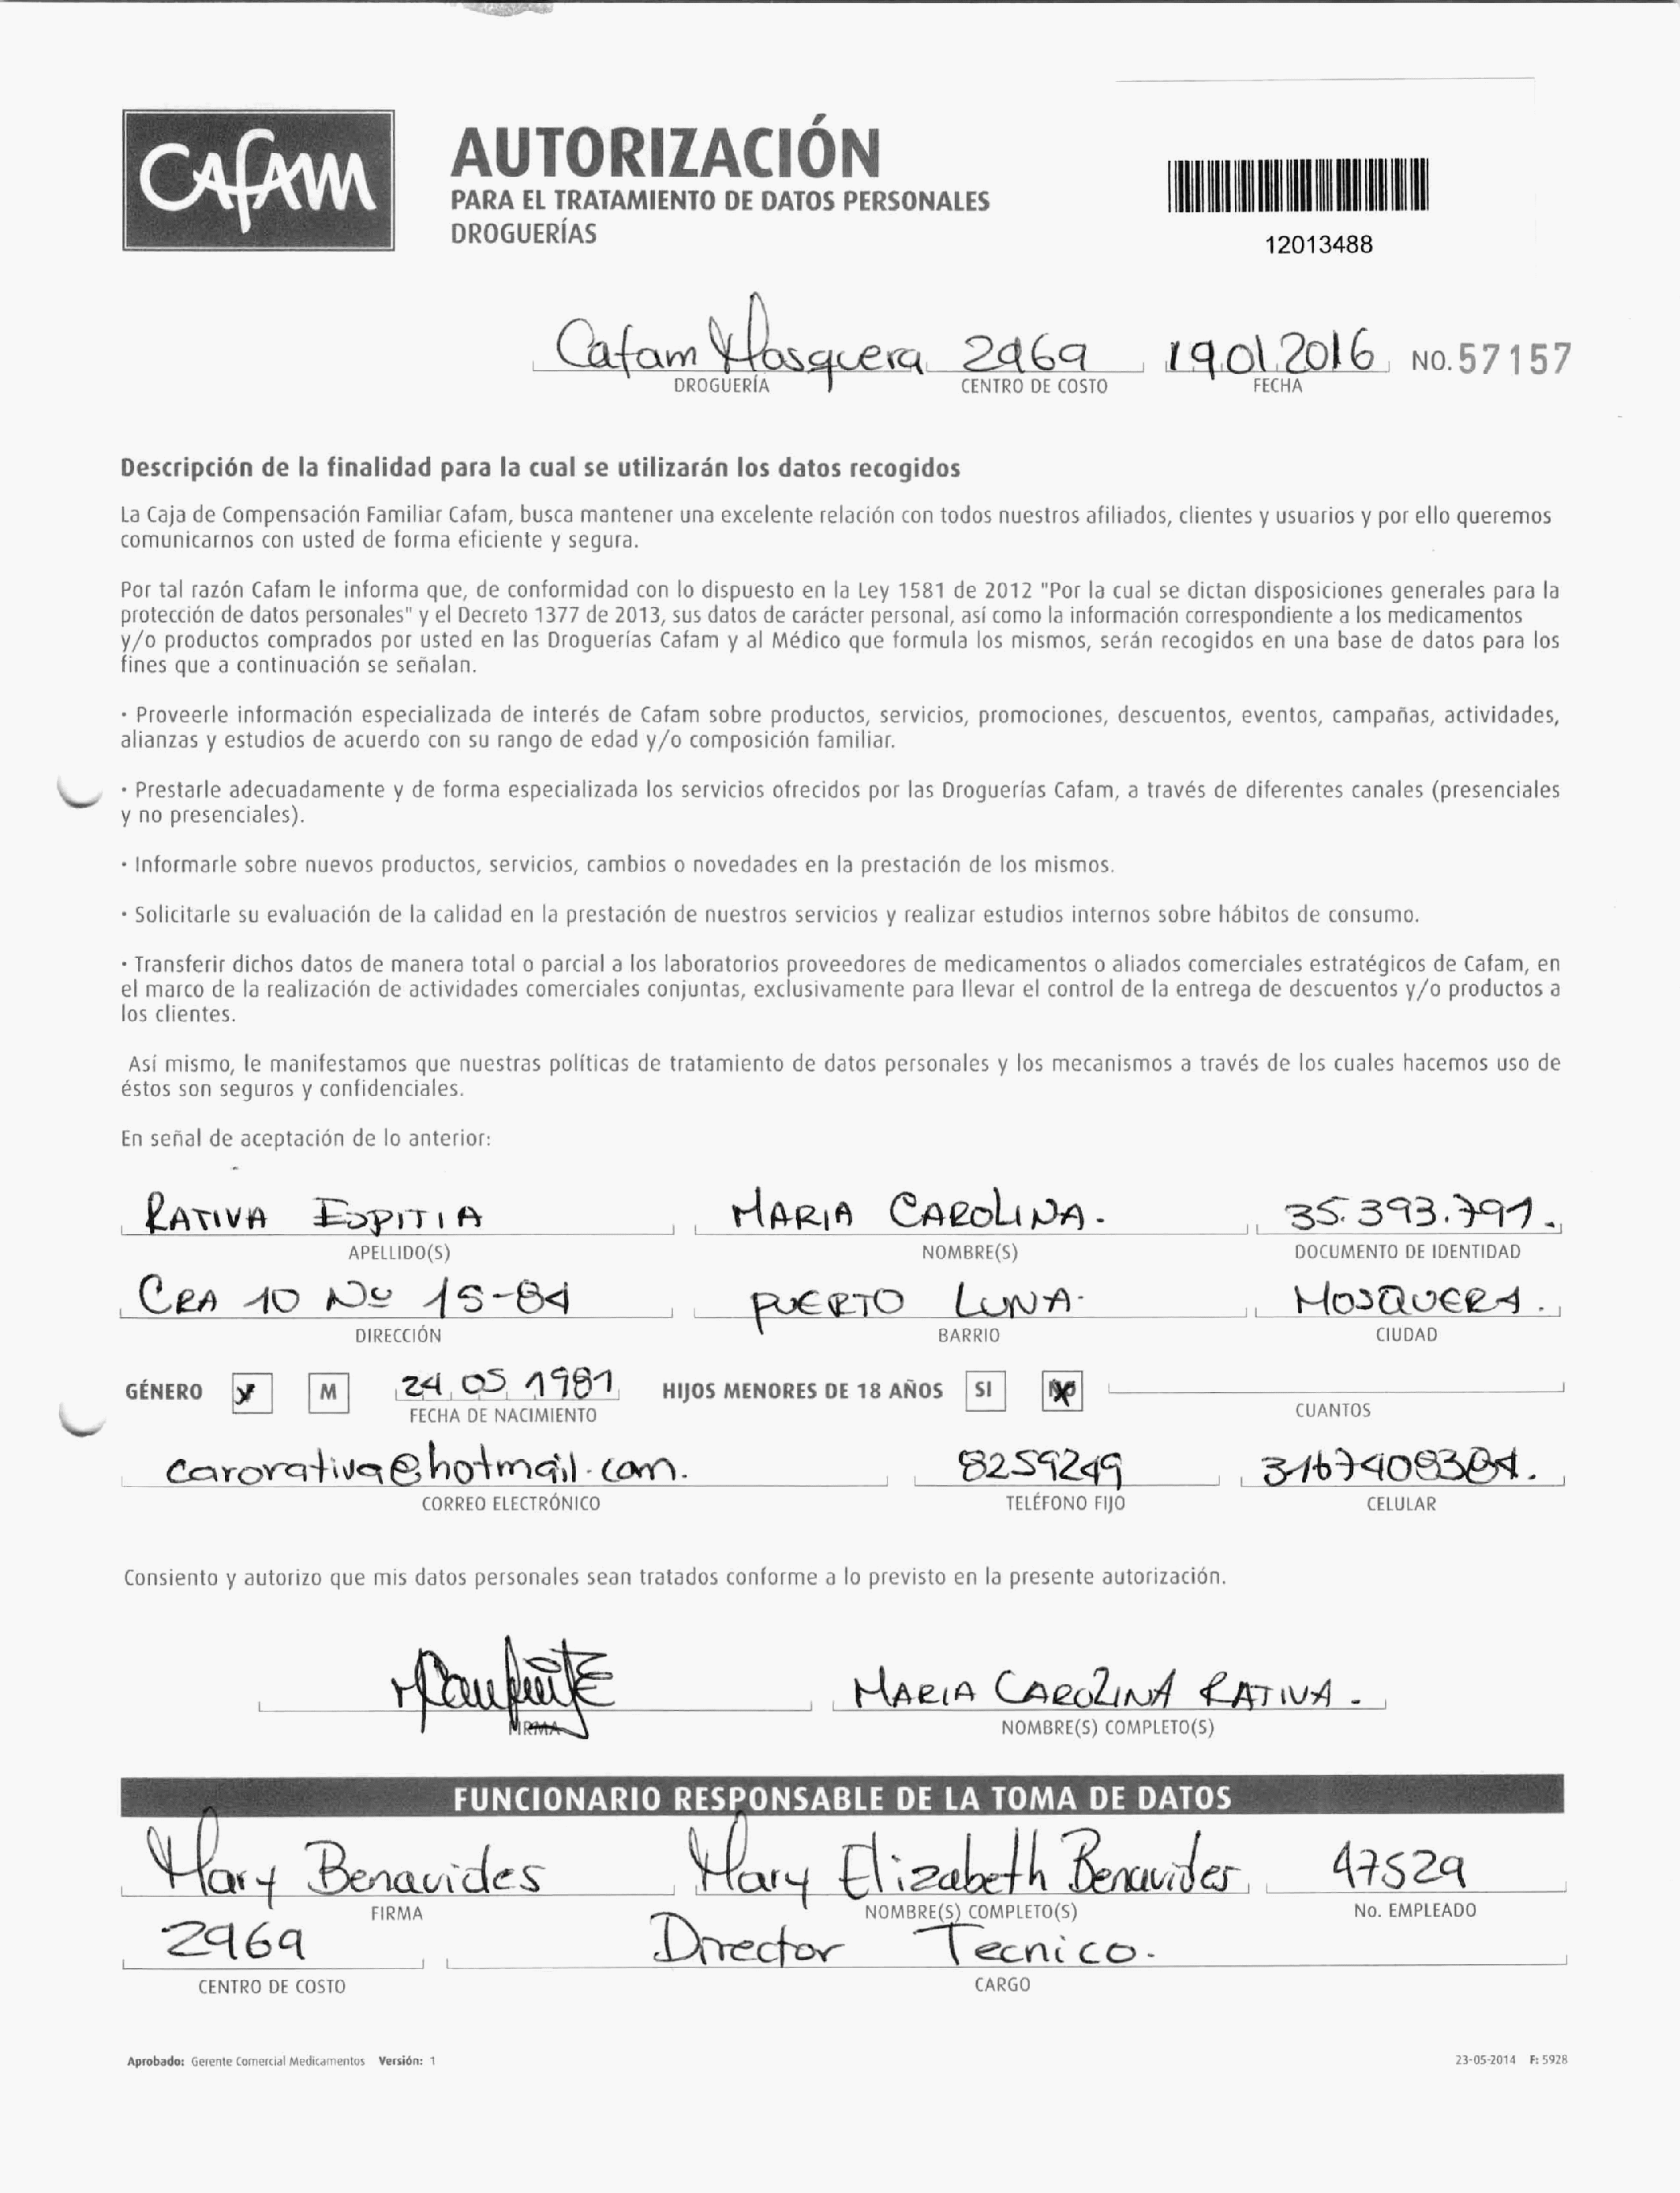 CAFAM
AUTORIZACIÓN
PARA EL TRATAMIENTO DE DATOS PERSONALES
DROGUERÍAS
12013488
Cafam Mosquera 2969 19.01.2016 NO. 57157
DROGUERÍA CENTRO DE COSTO FECHA
Descripción de la finalidad para la cual se utilizarán los datos recogidos
La Caja de Compensación Familiar Cafam, busca mantener una excelente relación con todos nuestros afiliados, clientes y usuarios y por ello queremos
comunicarnos con usted de forma eficiente y segura.
Por tal razón Cafam le informa que, de conformidad con lo dispuesto en la Ley 1581 de 2012 "Por la cual se dictan disposiciones generales para la
protección de datos personales" y el Decreto 1377 de 2013, sus datos de carácter personal, así como la información correspondiente a los medicamentos
y/o productos comprados por usted en las Droguerías Cafam y al Médico que formula los mismos, serán recogidos en una base de datos para los
fines que a continuación se señalan.
· Proveerle información especializada de interés de Cafam sobre productos, servicios, promociones, descuentos, eventos, campañas, actividades,
alianzas y estudios de acuerdo con su rango de edad y/o composición familiar.
· Prestarle adecuadamente y de forma especializada los servicios ofrecidos por las Droguerías Cafam, a través de diferentes canales (presenciales
y no presenciales).
· Informarle sobre nuevos productos, servicios, cambios o novedades en la prestación de los mismos.
· Solicitarle su evaluación de la calidad en la prestación de nuestros servicios y realizar estudios internos sobre hábitos de consumo.
· Transferir dichos datos de manera total o parcial a los laboratorios proveedores de medicamentos o aliados comerciales estratégicos de Cafam, en
el marco de la realización de actividades comerciales conjuntas, exclusivamente para llevar el control de la entrega de descuentos y/o productos a
los clientes.
Así mismo, le manifestamos que nuestras políticas de tratamiento de datos personales y los mecanismos a través de los cuales hacemos uso de
éstos son seguros y confidenciales.
En señal de aceptación de lo anterior:
RATIVA ESPITIA MARIA CAROLINA. 35.393.791.
APELLIDO(S) NOMBRE(S) DOCUMENTO DE IDENTIDAD
CRA 10 No 15-84 PUERTO LUNA. MOSQUERA.
DIRECCIÓN BARRIO CIUDAD
GÉNERO M 24 05 1981 HIJOS MENORES DE 18 AÑOS SI NO
FECHA DE NACIMIENTO CUANTOS
carorativa@hotmail.com. 8259249
CORREO ELECTRÓNICO TELÉFONO FIJO CELULAR
Consiento y autorizo que mis datos personales sean tratados conforme a lo previsto en la presente autorización.
MARIA CAROLINA RATIVA.
FIRMA NOMBRE(S) COMPLETO(S)
FUNCIONARIO RESPONSABLE DE LA TOMA DE DATOS
Mary Benavides Mary Elizabeth Benavides 47529
FIRMA NOMBRE(S) COMPLETO(S) No. EMPLEADO
2969 Director Tecnico.
CENTRO DE COSTO CARGO
Aprobado: Gerente Comercial Medicamentos Versión: 1 23-05-2014 F: 5928